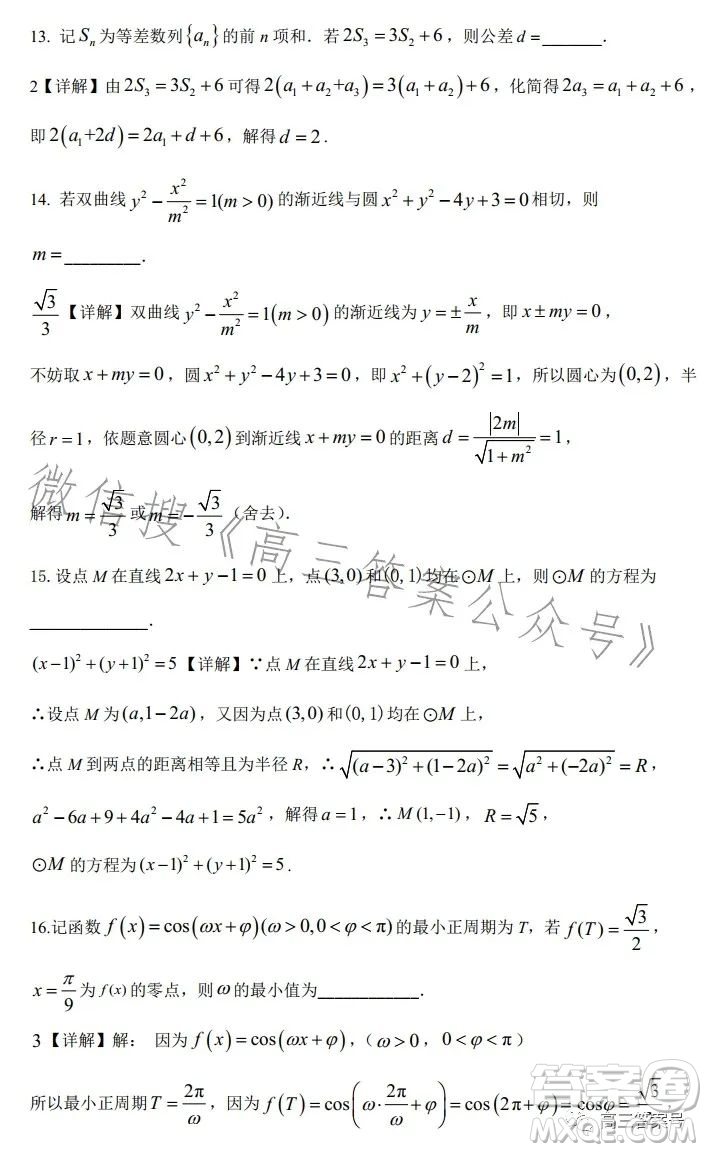 13. 记 Sₙ 为等差数列{aₙ}的前 n 项和. 若 2S₃=3S₂+6, 则公差 d=_______.
2【详解】由 2S₃=3S₂+6 可得 2(a₁+a₂+a₃)=3(a₁+a₂)+6, 化简得 2a₃=a₁+a₂+6,
即 2(a₁+2d)=2a₁+d+6, 解得 d=2.
14. 若双曲线 y²-x²/m²=1(m>0) 的渐近线与圆 x²+y²-4y+3=0 相切, 则
m=_________.
√3/3【详解】双曲线 y²-x²/m²=1(m>0) 的渐近线为 y=±x/m, 即 x±my=0,
不妨取 x+my=0, 圆 x²+y²-4y+3=0, 即 x²+(y-2)²=1, 所以圆心为(0,2), 半
径 r=1, 依题意圆心(0,2)到渐近线 x+my=0 的距离 d=|2m|/√(1+m²)=1,
解得 m=√3/3 或 m=-√3/3 (舍去).
15. 设点 M 在直线 2x+y-1=0 上, 点(3,0)和(0,1)均在⊙M 上, 则⊙M 的方程为
______________.
(x-1)²+(y+1)²=5【详解】∵点 M 在直线 2x+y-1=0 上,
∴设点 M 为(a,1-2a), 又因为点(3,0)和(0,1)均在⊙M 上,
∴点 M 到两点的距离相等且为半径 R, ∴√((a-3)²+(1-2a)²)=√(a²+(-2a)²)=R,
a²-6a+9+4a²-4a+1=5a², 解得 a=1, ∴M(1,-1), R=√5,
⊙M 的方程为(x-1)²+(y+1)²=5.
16.记函数 f(x)=cos(ωx+φ)(ω>0,0<φ<π)的最小正周期为 T, 若 f(T)=√3/2,
x=π/9 为 f(x) 的零点, 则 ω 的最小值为____________.
3【详解】解: 因为 f(x)=cos(ωx+φ), (ω>0, 0<φ<π)
所以最小正周期 T=2π/ω, 因为 f(T)=cos(ω·2π/ω+φ)=cos(2π+φ)=cosφ=√3/2
微信搜《高三答案公众号》
高三答案号
答案圈